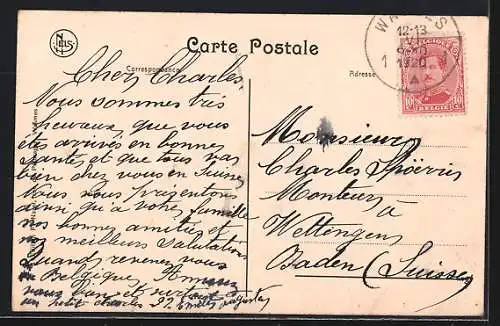 Carte Postale
Correspondance
Adresse
12-13
1920
BELGIQUE
10 10
Cher Charles.
Nous sommes très
heureux, que vous
êtes arrivés en bonnes
santés et que tous vas
bien chez vous en Suisse
Nous vous présentons
ainsi qu'a votre famille
nos bonnes amitiés et
nos meilleurs salutations
Quand revenez vous
en Belgique,
petit Charles
Monsieur
Charles Spoërri
Monteur à
Wettengen
Baden (Suisse)